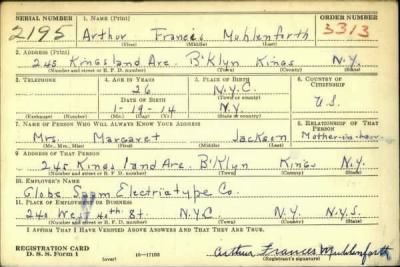 SERIAL NUMBER 1. NAME (Print) ORDER NUMBER
2195 Arthur Frances Muhlenforth 3313
(First) (Middle) (Last)
2. ADDRESS (Print)
245 Kingsland Ave. B'Klyn Kings N.Y.
(Number and street or R. F. D. number) (Town) (County) (State)
3. TELEPHONE 4. AGE IN YEARS 5. PLACE OF BIRTH 6. COUNTRY OF CITIZENSHIP
26 N.Y.C.
DATE OF BIRTH (Town or county)
1-19-14 N.Y. U.S.
(Exchange) (Number) (Mo.) (Day) (Yr.) (State or country)
7. NAME OF PERSON WHO WILL ALWAYS KNOW YOUR ADDRESS 8. RELATIONSHIP OF THAT PERSON
Mrs. Margaret Jackson Mother-in-law
(Mr., Mrs., Miss) (First) (Middle) (Last)
9. ADDRESS OF THAT PERSON
245 Kingsland Ave. B'Klyn Kings N.Y.
(Number and street or R. F. D. number) (Town) (County) (State)
10. EMPLOYER'S NAME
Globe Electriatype Co.
11. PLACE OF EMPLOYMENT OR BUSINESS
240 West 40th St. N.Y.C. N.Y. N.Y.S.
(Number and street or R. F. D. number) (Town) (County) (State)
I AFFIRM THAT I HAVE VERIFIED ABOVE ANSWERS AND THAT THEY ARE TRUE.
REGISTRATION CARD
D. S. S. Form 1 (over) 16—17105 Arthur Frances Muhlenforth
(Registrant's signature)